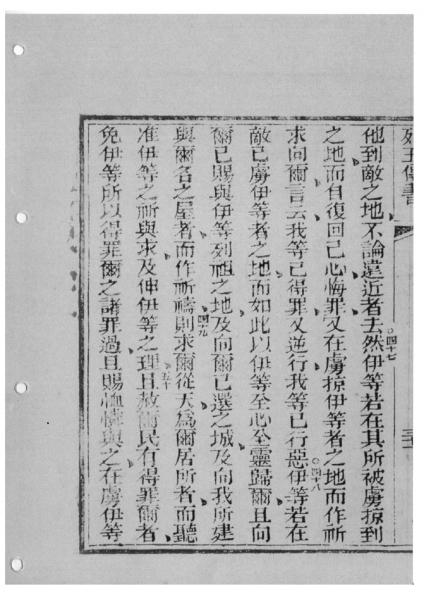 列王傳書
他到敵之地不論遠近者去○四十七然伊等若在其所被虜掠到
之地而自復回己心悔罪又在虜掠伊等者之地而作祈
求向爾言云我等已得罪又逆行我等已行惡○四十八伊等若在
敵已虜伊等者之地而如此以伊等至心至靈歸爾且向
爾已賜與伊等列祖之地及向爾已選之城及向我所建
與爾名之屋者而作祈禱○四十九則求爾從天爲爾居所者而聽
准伊等之祈與求及伸伊等之理○五十且赦爾民有得罪爾者
免伊等所以得罪爾之諸罪過且賜恤憐與之在虜伊等